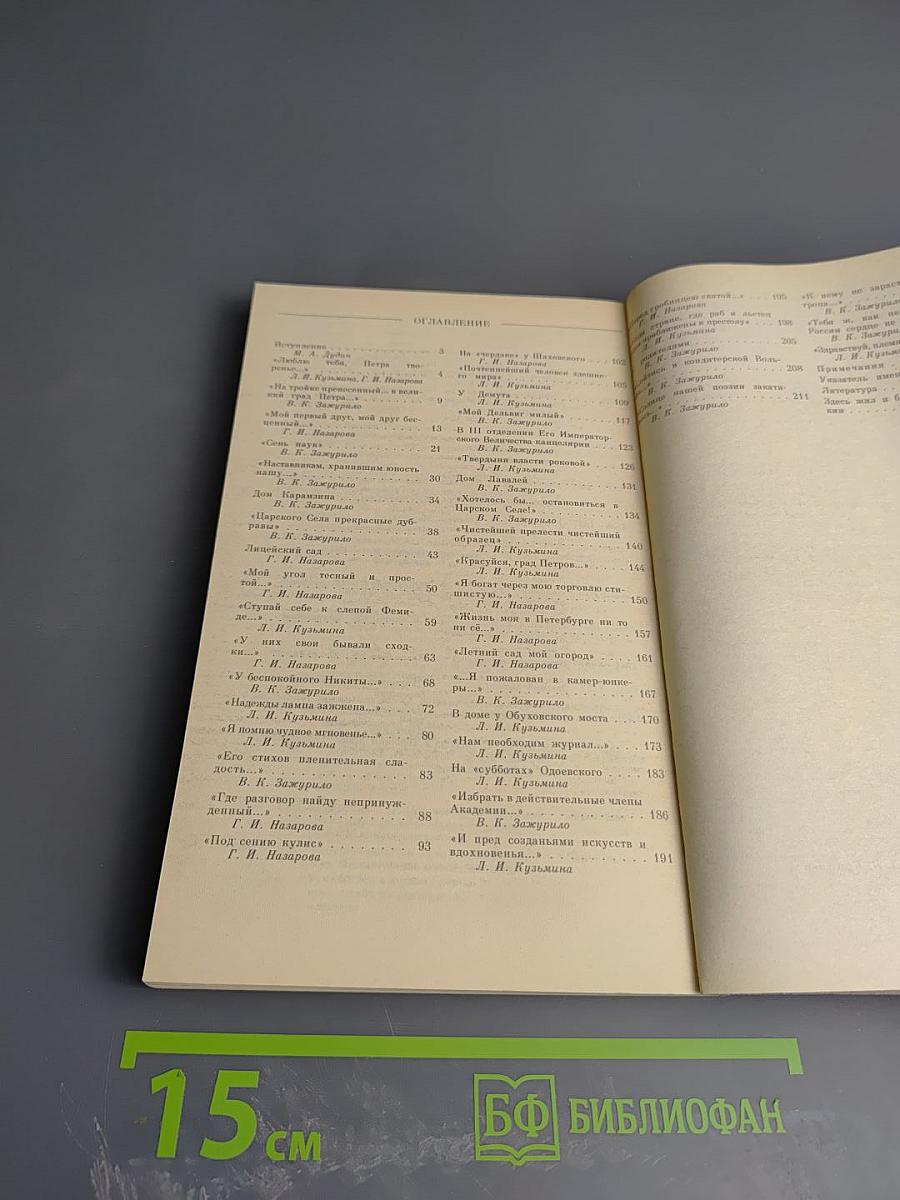 ОГЛАВЛЕНИЕ
Вступление . . . . . . . . . . . 3
М. А. Дудин
«Люблю тебя, Петра тво-
ренье...» . . . . . . . . . . . 4
Л. И. Кузьмина, Г. И. Назарова
«На тройке пренесенный... в вели-
кий град Петра...» . . . . . 9
В. К. Зажурило
«Мой первый друг, мой друг бес-
ценный...» . . . . . . . . . . 13
Г. И. Назарова
«Сень наук» . . . . . . . . . . 21
В. К. Зажурило
«Наставникам, хранившим юность
нашу...» . . . . . . . . . . . 30
В. К. Зажурило
Дом Карамзина . . . . . . . . . 34
В. К. Зажурило
«Царского Села прекрасные дуб-
равы» . . . . . . . . . . . . 38
В. К. Зажурило
Лицейский сад . . . . . . . . . 43
Г. И. Назарова
«Мой угол тесный и прос-
той...» . . . . . . . . . . . 50
Г. И. Назарова
«Ступай себе к слепой Феми-
де...» . . . . . . . . . . . . 59
Л. И. Кузьмина
«У них свои бывали сход-
ки...» . . . . . . . . . . . . 63
Г. И. Назарова
«У беспокойного Никиты...» . . . 68
В. К. Зажурило
«Надежды лампа зажжена...» . . . 72
Л. И. Кузьмина
«Я помню чудное мгновенье...» . . . 80
Л. И. Кузьмина
«Его стихов пленительная сла-
дость...» . . . . . . . . . . . 83
В. К. Зажурило
«Где разговор найду непринуж-
денный...» . . . . . . . . . . 88
Г. И. Назарова
«Под сению кулис» . . . . . . . . 93
Г. И. Назарова
На «чердаке» у Шаховского . . . 102
Г. И. Назарова
«Почтеннейший человек здешне-
го мира» . . . . . . . . . . . 105
Л. И. Кузьмина
У Демута . . . . . . . . . . . 109
Л. И. Кузьмина
«Мой Дельвиг милый» . . . . . . 117
В. К. Зажурило
В III отделении Его Император-
ского Величества канцелярии . . . 123
В. К. Зажурило
«Твердыня власти роковой» . . . 126
Л. И. Кузьмина
Дом Лавалей . . . . . . . . . . 131
В. К. Зажурило
«Хотелось бы... остановиться в
Царском Селе!» . . . . . . . . 134
В. К. Зажурило
«Чистейшей прелести чистейший
образец» . . . . . . . . . . . 140
Л. И. Кузьмина
«Красуйся, град Петров...» . . . . 144
Л. И. Кузьмина
«Я богат через мою торговлю сти-
шистую...» . . . . . . . . . . 150
Г. И. Назарова
«Жизнь моя в Петербурге ни то
ни сё...» . . . . . . . . . . . 157
Г. И. Назарова
«Летний сад мой огород» . . . . 161
Г. И. Назарова
«...Я пожалован в камер-юнке-
ры...» . . . . . . . . . . . . 167
В. К. Зажурило
В доме у Обуховского моста . . . 170
Л. И. Кузьмина
«Нам необходим журнал...» . . . 173
Л. И. Кузьмина
На «субботах» Одоевского . . . . 183
Л. И. Кузьмина
«Избрать в действительные члены
Академии...» . . . . . . . . . 186
В. К. Зажурило
«И пред созданьями искусств и
вдохновенья...» . . . . . . . . 191
Л. И. Кузьмина
гробницею святой...» . . . 195
Г. И. Назарова
стране, где раб и льстец
приближены к престолу» . . . 198
Л. И. Кузьмина
205
Зажурило
в кондитерской Воль-
208
В. К. Зажурило
нашей поэзии закати-
211
В. К. Зажурило
«К нему не зарас
тропа...»
В. К. Зажур
«Тебя ж, как пе
России сердце не
В. К. Зажур
«Здравствуй, племя
Л. И. Кузьми
Примечания
Указатель имен
Литература
Здесь жил и б
кин
15 см
БФ БИБЛИОФАН